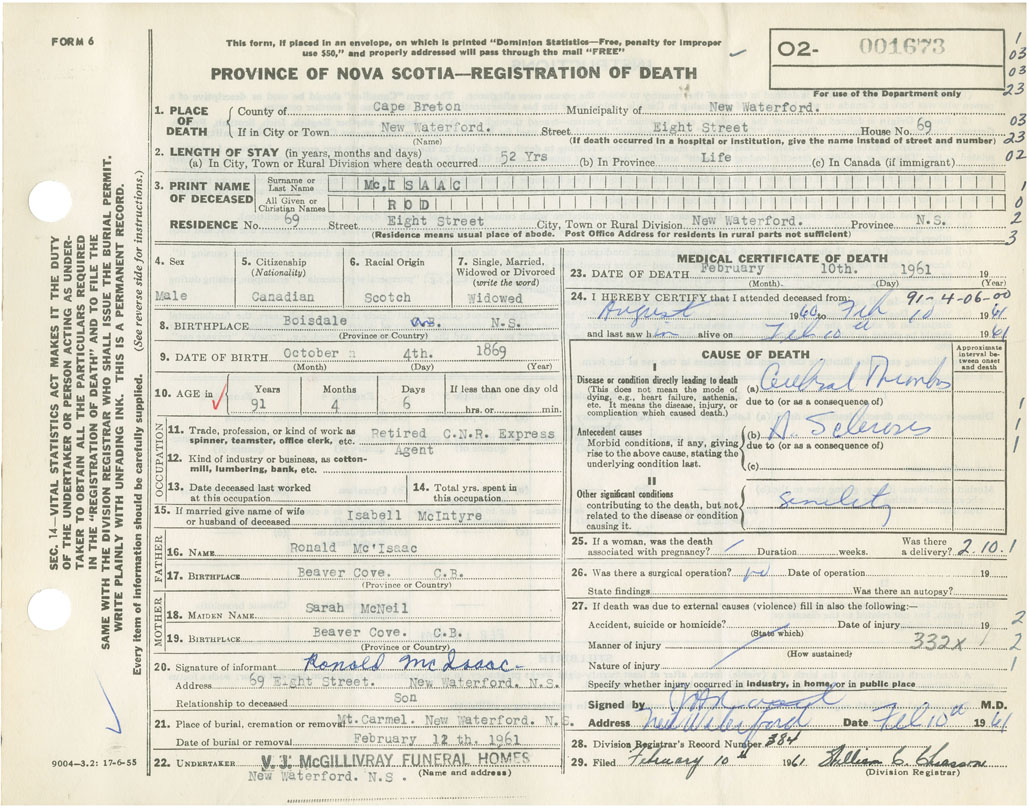 FORM 6
This form, if placed in an envelope, on which is printed "Dominion Statistics—Free, penalty for improper
use $50," and properly addressed will pass through the mail "FREE"
PROVINCE OF NOVA SCOTIA—REGISTRATION OF DEATH
O2- 001673
For use of the Department only
1
03
03
23
03
23
02
1
0
2
3
SEC. 14—VITAL STATISTICS ACT MAKES IT THE DUTY
OF THE UNDERTAKER OR PERSON ACTING AS UNDER-
TAKER TO OBTAIN ALL THE PARTICULARS REQUIRED
IN THE "REGISTRATION OF DEATH" AND TO FILE THE
SAME WITH THE DIVISION REGISTRAR WHO SHALL ISSUE THE BURIAL PERMIT.
WRITE PLAINLY WITH UNFADING INK. THIS IS A PERMANENT RECORD.
Every item of information should be carefully supplied. (See reverse side for instructions.)
1. PLACE OF DEATH
County of Cape Breton Municipality of New Waterford.
If in City or Town New Waterford. Street Eight Street House No. 69
(Name) (If death occurred in a hospital or institution, give the name instead of street and number)
2. LENGTH OF STAY (in years, months and days)
(a) In City, Town or Rural Division where death occurred 52 Yrs (b) In Province Life (c) In Canada (if immigrant)
3. PRINT NAME OF DECEASED
Surname or Last Name Mc,ISAAC
All Given or Christian Names ROD
RESIDENCE No. 69 Street Eight Street City, Town or Rural Division New Waterford. Province N.S.
(Residence means usual place of abode. Post Office Address for residents in rural parts not sufficient)
4. Sex
Male
5. Citizenship (Nationality)
Canadian
6. Racial Origin
Scotch
7. Single, Married, Widowed or Divorced (write the word)
Widowed
8. BIRTHPLACE Boisdale C.B. N.S.
(Province or Country)
9. DATE OF BIRTH October 4th. 1869
(Month) (Day) (Year)
10. AGE in
Years Months Days If less than one day old
91 4 6 hrs. or min.
OCCUPATION
11. Trade, profession, or kind of work as spinner, teamster, office clerk, etc. Retired C.N.R. Express
Agent
12. Kind of industry or business, as cotton-mill, lumbering, bank, etc.
13. Date deceased last worked at this occupation
14. Total yrs. spent in this occupation
15. If married give name of wife or husband of deceased Isabell McIntyre
FATHER
16. NAME Ronald Mc'Isaac
17. BIRTHPLACE Beaver Cove. C.B.
(Province or Country)
MOTHER
18. MAIDEN NAME Sarah McNeil
19. BIRTHPLACE Beaver Cove. C.B.
(Province or Country)
20. Signature of informant Ronald McIsaac
Address 69 Eight Street. New Waterford. N.S.
Relationship to deceased Son
21. Place of burial, cremation or removal Mt.Carmel. New Waterford. N.S.
Date of burial or removal February 12 th. 1961
22. UNDERTAKER V. J. McGILLIVRAY FUNERAL HOMES
New Waterford. N.S. (Name and address)
9004—3.2: 17-6-55
MEDICAL CERTIFICATE OF DEATH
23. DATE OF DEATH February 10th. 1961 19
(Month) (Day) (Year)
91-4-06-00
24. I HEREBY CERTIFY that I attended deceased from
August 1960 to Feb 10 1961
and last saw him alive on Feb 10th 1961
CAUSE OF DEATH
Approximate interval between onset and death
I
Disease or condition directly leading to death
(This does not mean the mode of dying, e.g., heart failure, asthenia, etc. It means the disease, injury, or complication which caused death.)
(a) Cerebral Thrombs
due to (or as a consequence of)
Antecedent causes
Morbid conditions, if any, giving rise to the above cause, stating the underlying condition last.
(b) A. Sclerosis
due to (or as a consequence of)
(c)
II
Other significant conditions
contributing to the death, but not related to the disease or condition causing it.
senility
1
1
1
1
25. If a woman, was the death associated with pregnancy? Duration weeks. Was there a delivery? 2.10.1
26. Was there a surgical operation? no Date of operation 19
State findings Was there an autopsy?
27. If death was due to external causes (violence) fill in also the following:—
Accident, suicide or homicide? Date of injury 19 2
(State which)
Manner of injury 332X 1 2
(How sustained)
Nature of injury 1
Specify whether injury occurred in industry, in home, or in public place
Signed by M.D.
Address New Waterford Date Feb 10th 1961
28. Division Registrar's Record Number 384
29. Filed February 10th 1961 William C. Chiasson
(Division Registrar)